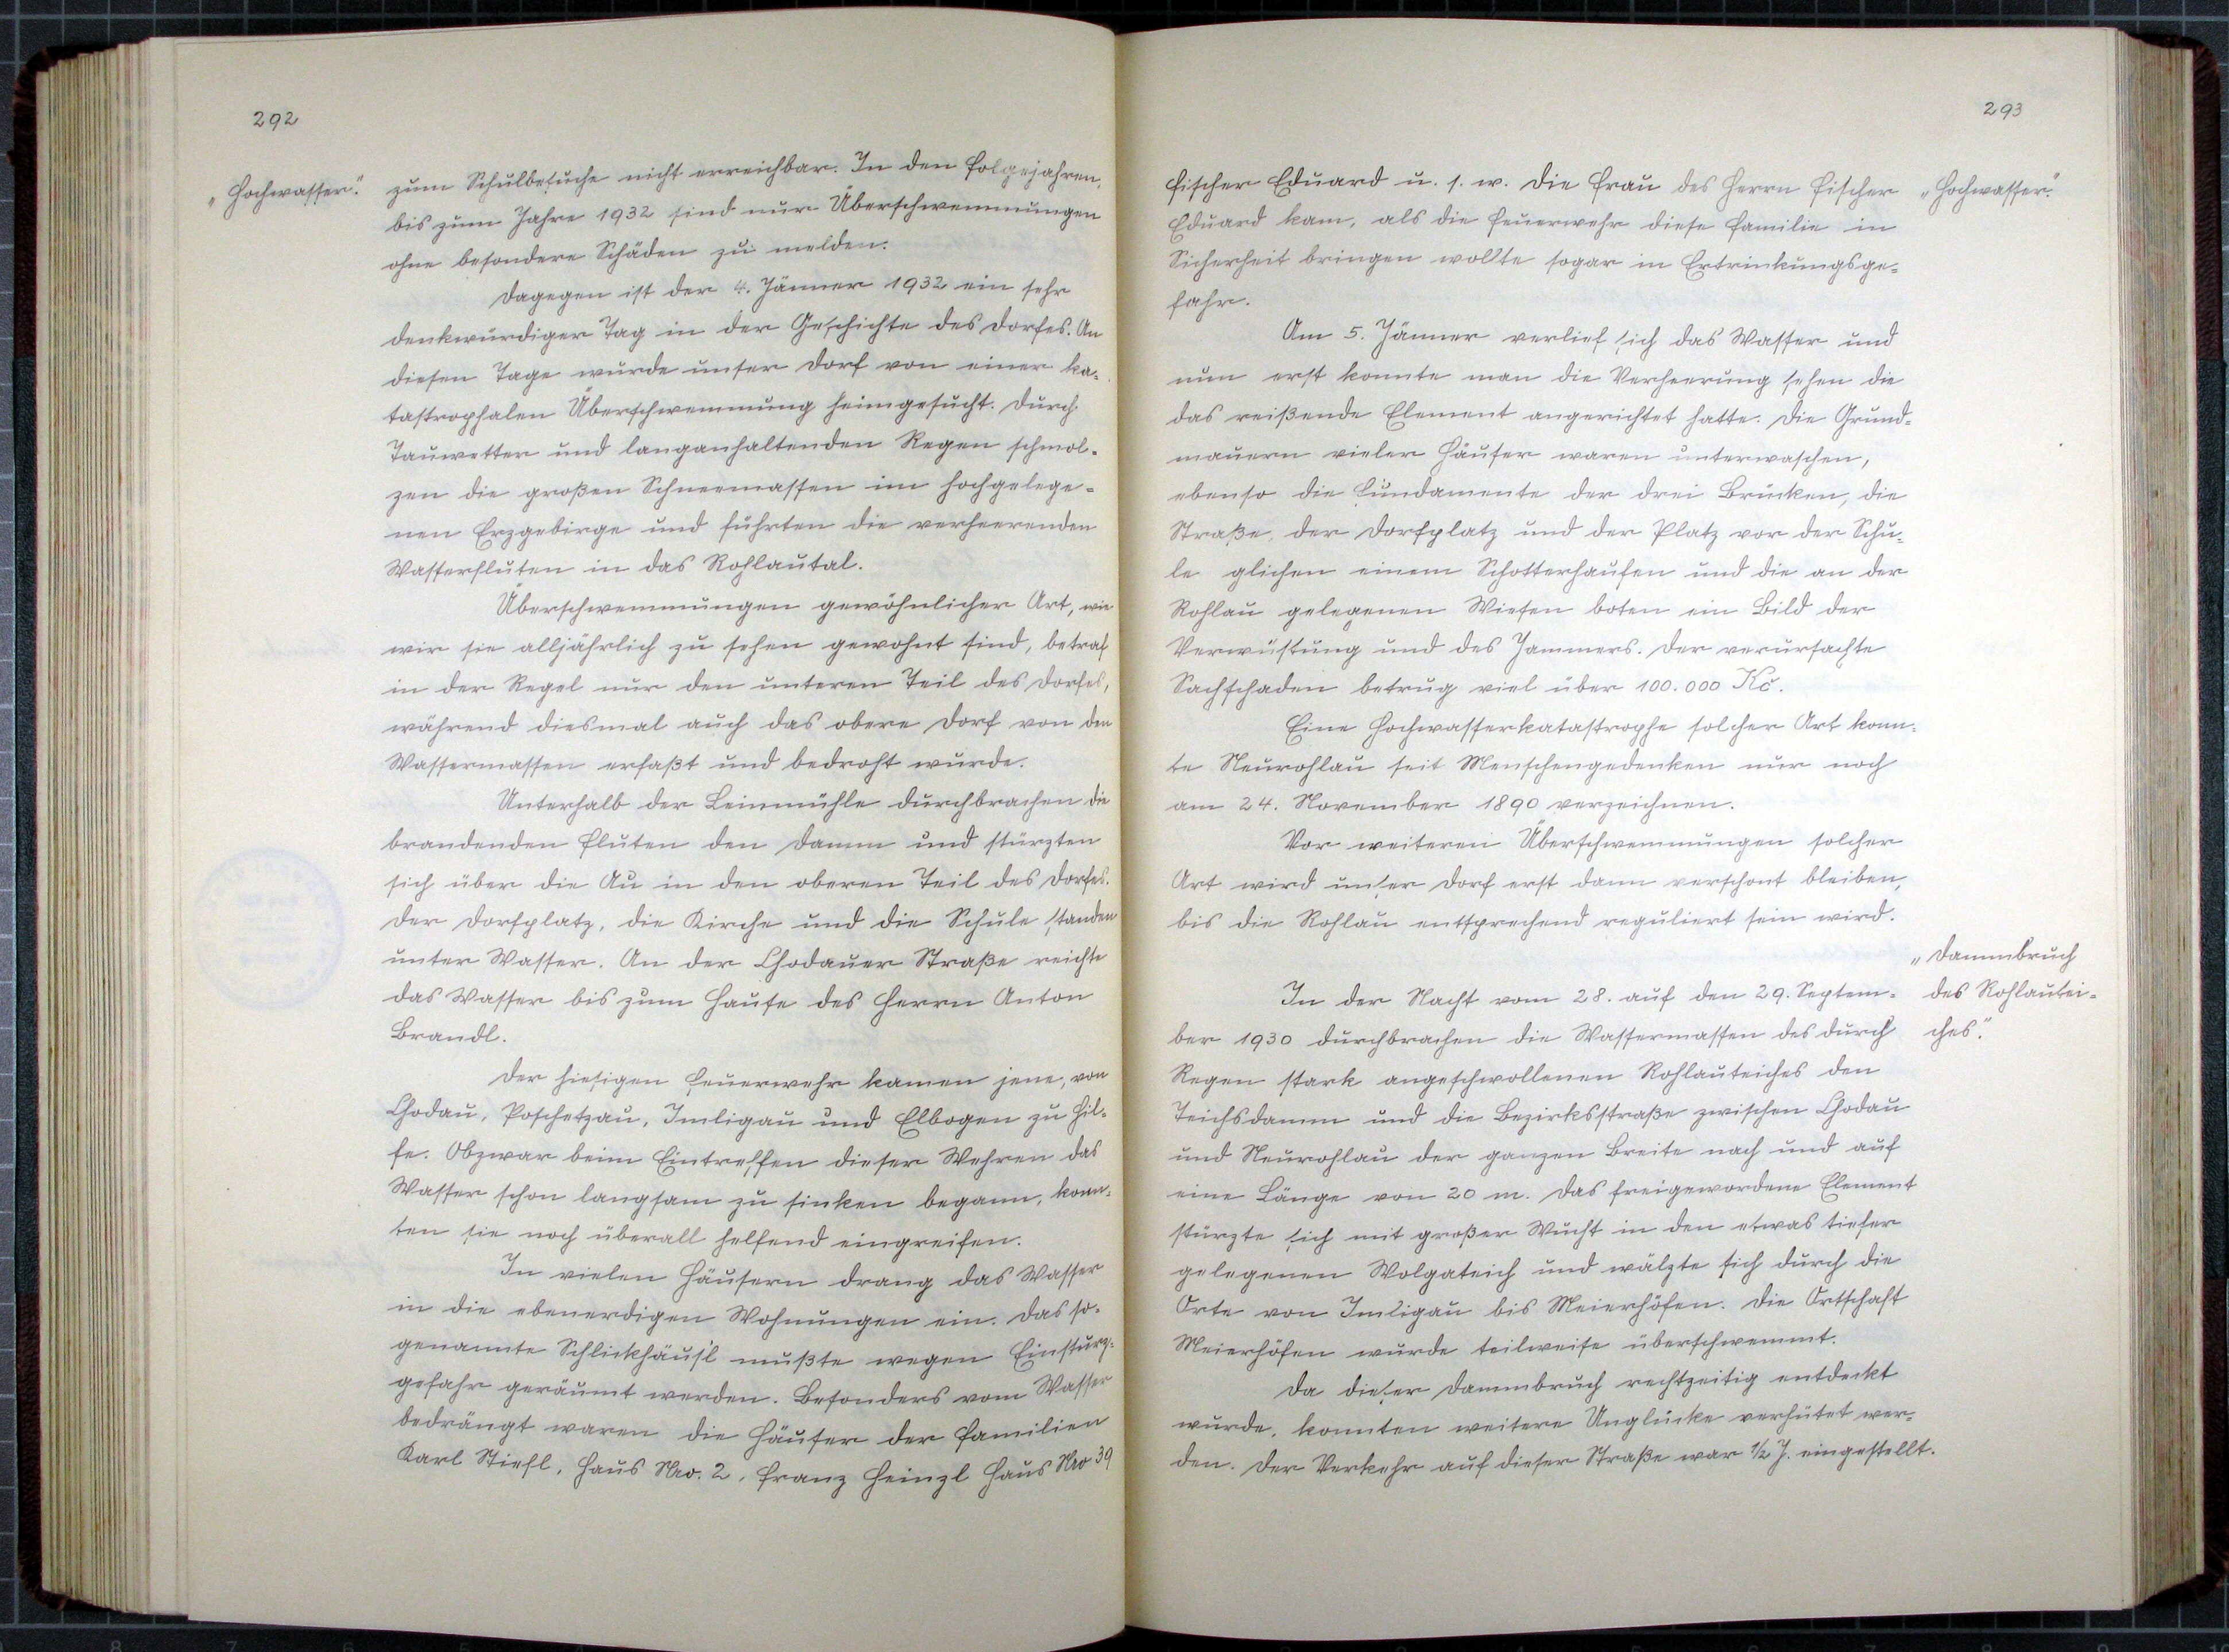 292
„Hochwasser."
zum Schulbesuche nicht erreichbar. In den Folgejahren,
bis zum Jahre 1932 sind nur Überschwemmungen
ohne besondere Schäden zu melden.
Dagegen ist der 4. Jänner 1932 ein sehr
denkwürdiger Tag in der Geschichte des Dorfes. An
diesen Tage wurde unser Dorf von einer ka-
tastrophalen Überschwemmung heimgesucht. Durch
Tauwetter und langanhaltenden Regen schmol-
zen die großen Schneemassen im hochgelege-
nen Erzgebirge und führten die verheerenden
Wasserfluten in das Rohlautal.
Überschwemmungen gewöhnlicher Art, wie
wir sie alljährlich zu sehen gewohnt sind, betraf
in der Regel nur den unteren Teil des Dorfes,
während diesmal auch das obere Dorf von den
Wassermassen erfaßt und bedroht wurde.
Unterhalb der Leinmühle durchbrachen die
brandenden Fluten den Damm und stürzten
sich über die Au in den oberen Teil des Dorfes.
Der Dorfplatz, die Kirche und die Schule standen
unter Wasser. An der Chodauer Straße reichte
das Wasser bis zum Hause des Herrn Anton
Brandl.
Der hiesigen Feuerwehr kamen jene, von
Chodau, Poschetzau, Imligau und Elbogen zu Hil-
fe. Obzwar beim Eintreffen dieser Wehren das
Wasser schon langsam zu sinken begann, konn-
ten sie noch überall helfend eingreifen.
In vielen Häusern drang das Wasser
in die ebenerdigen Wohnungen ein. Das so-
genannte Schlickhäusl mußte wegen Einsturz-
gefahr geräumt werden. Besonders vom Wasser
bedrängt waren die Häuser der Familien
Karl Stiefl, Haus Nro. 2, Franz Heinzl Haus Nro 39
293
Fischer Eduard u. s. w. Die Frau des Herrn Fischer
„Hochwasser."
Eduard kam, als die Feuerwehr diese Familie in
Sicherheit bringen wollte sogar in Ertrinkungsge-
fahr.
Am 5. Jänner verlief sich das Wasser und
nun erst konnte man die Verheerung sehen die
das reißende Element angerichtet hatte. Die Grund-
mauern vieler Häuser waren unterwaschen,
ebenso die Fundamente der drei Brücken, die
Straße, der Dorfplatz und der Platz vor der Schu-
le glichen einem Schotterhaufen und die an der
Rohlau gelegenen Wiesen boten ein Bild der
Verwüstung und des Jammers. Der verursachte
Sachschaden betrug viel über 100.000 Kč.
Eine Hochwasserkatastrophe solcher Art konn-
te Neurohlau seit Menschengedenken nur noch
am 24. November 1890 verzeichnen.
Vor weiteren Überschwemmungen solcher
Art wird unser Dorf erst dann verschont bleiben,
bis die Rohlau entsprechend reguliert sein wird.
„Dammbruch
des Rohlautei-
ches."
In der Nacht vom 28. auf den 29. Septem-
ber 1930 durchbrachen die Wassermassen des durch
Regen stark angeschwollenen Rohlauteiches den
Teichsdamm und die Bezirksstraße zwischen Chodau
und Neurohlau der ganzen Breite nach und auf
eine Länge von 20 m. Das freigewordene Element
stürzte sich mit großer Wucht in den etwas tiefer
gelegenen Wolgateich und wälzte sich durch die
Orte von Imligau bis Meierhöfen. Die Ortschaft
Meierhöfen wurde teilweise überschwemmt.
Da dieser Dammbruch rechtzeitig entdeckt
wurde, konnten weitere Unglücke verhütet wer-
den. Der Verkehr auf dieser Straße war ½ J. eingestellt.